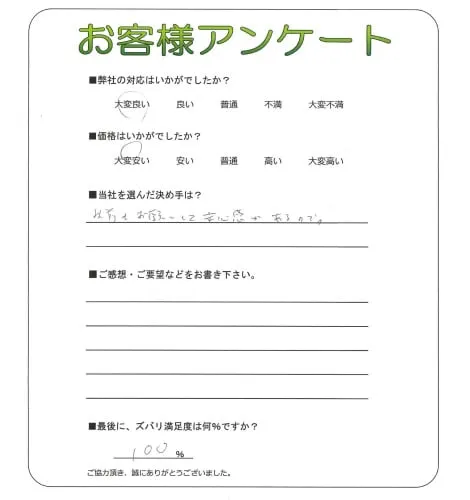 お客様アンケート
■弊社の対応はいかがでしたか？
大変良い 良い 普通 不満 大変不満
■価格はいかがでしたか？
大変安い 安い 普通 高い 大変高い
■当社を選んだ決め手は？
以前もお願いして安心感があるので。
■ご感想・ご要望などをお書き下さい。
■最後に、ズバリ満足度は何％ですか？
100 ％
ご協力頂き、誠にありがとうございました。